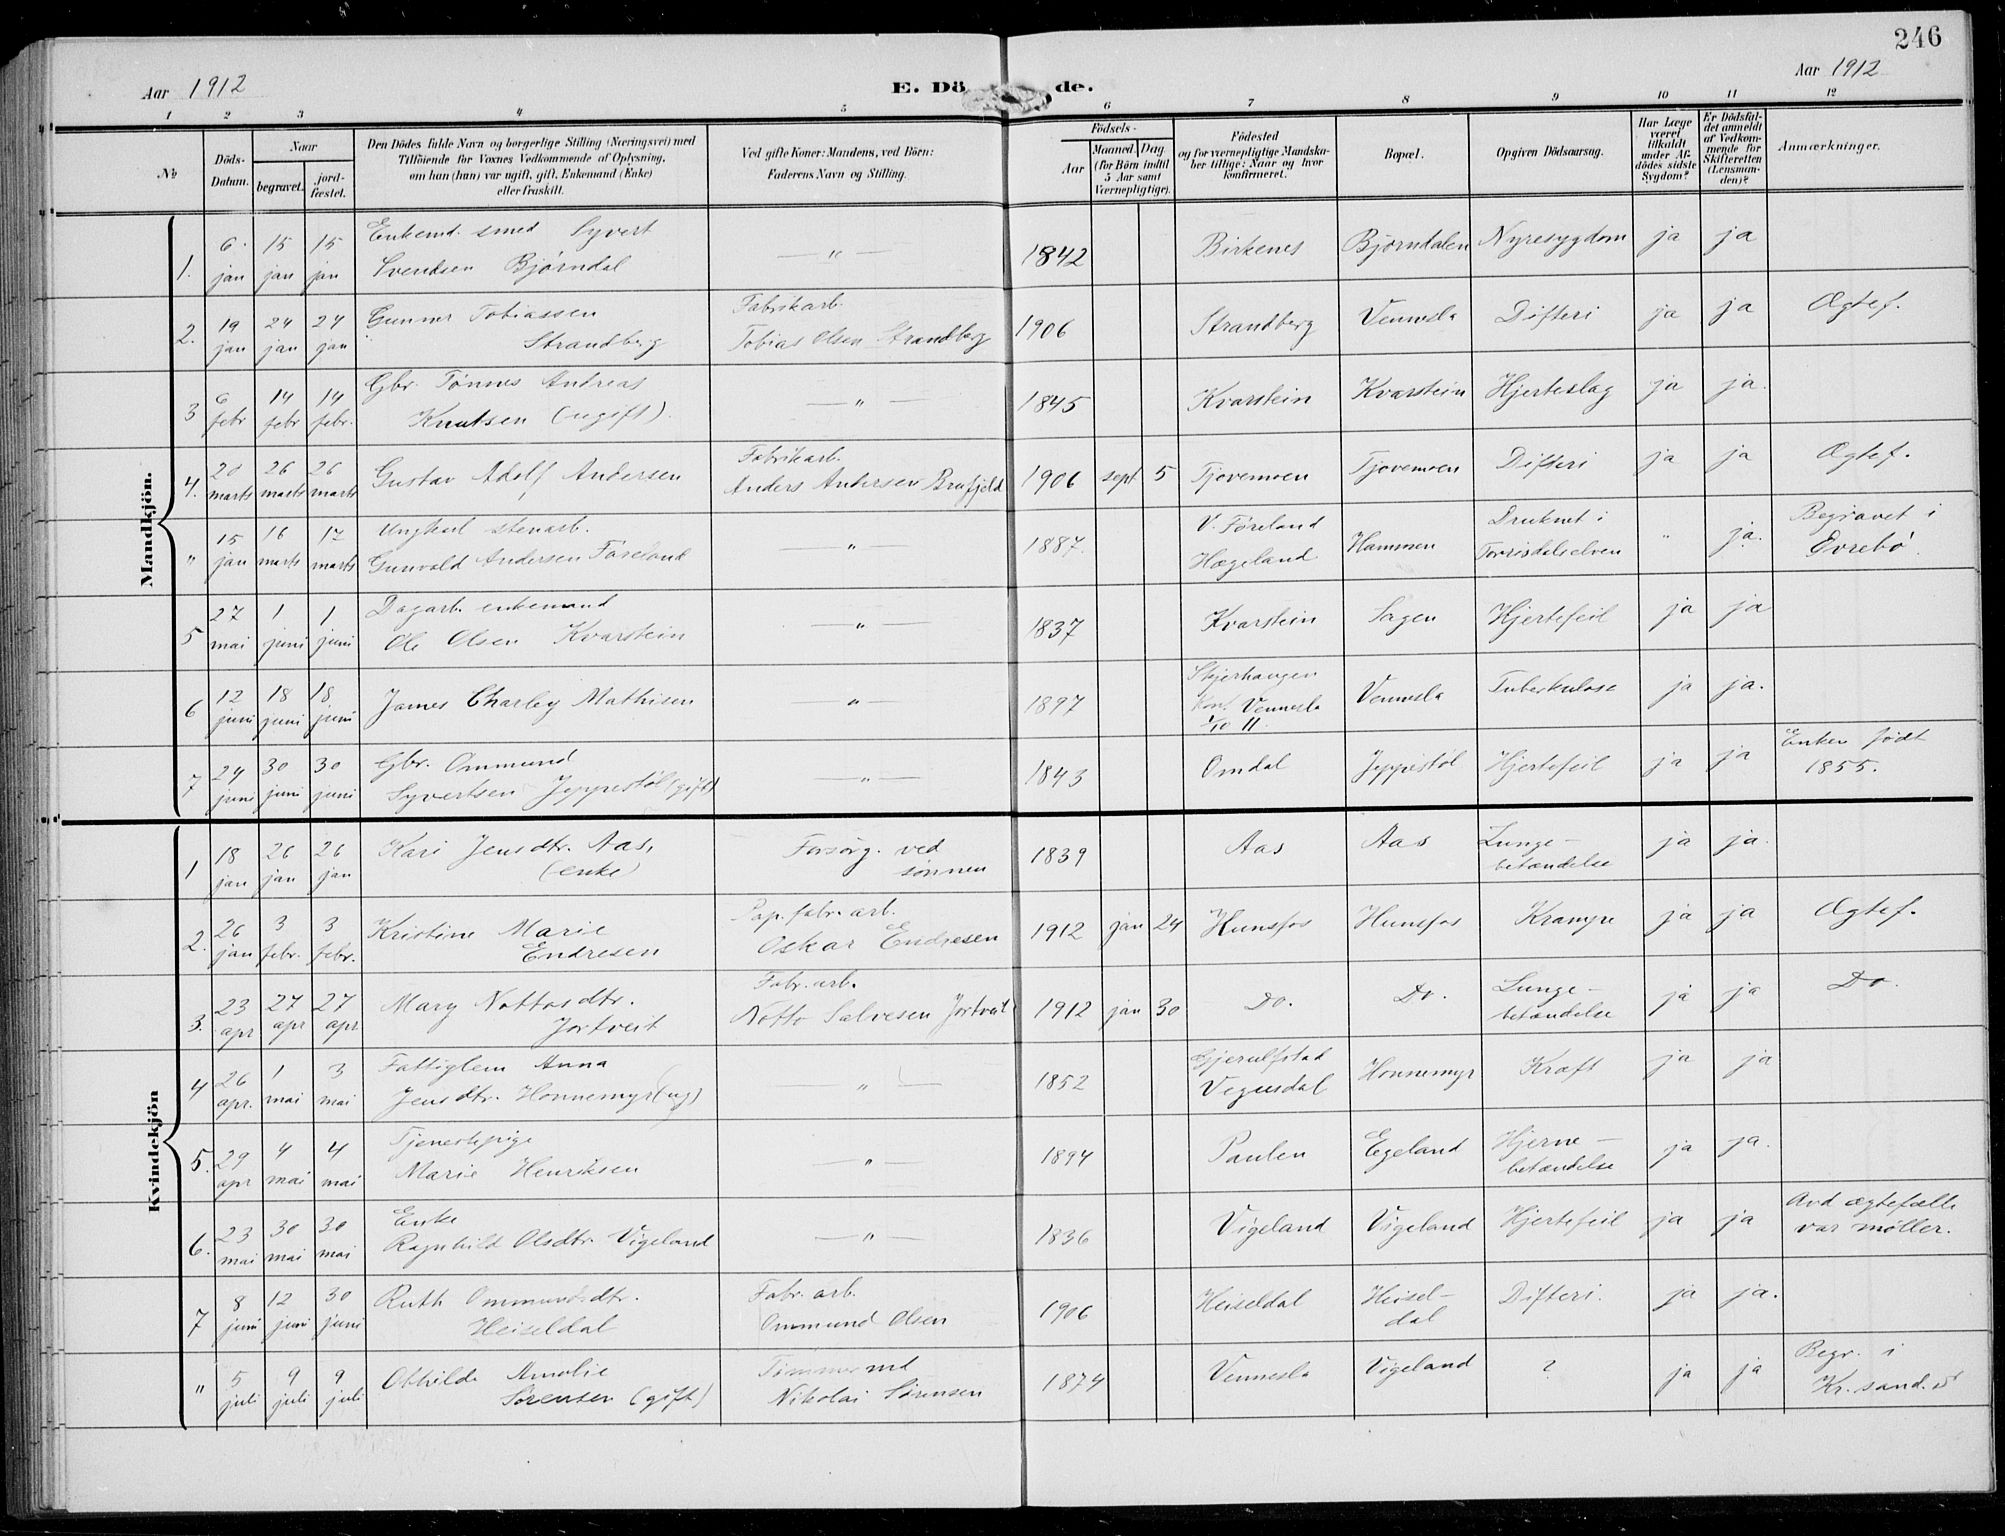 246
Aar 1912
E. Dö de.
Aar 1912
1 2 3 4 5 6 7 8 9 10 11 12
№
Döds-Datum.
Naar
begravet.
jord-fæstet.
Den Dödes fulde Navn og borgerlige Stilling (Næringsvei) med
Tilföiende for Voxnes Vedkommende af Oplysning,
om han (hun) var ugift, gift, Enkemand (Enke)
eller fraskilt.
Ved gifte Koner: Mandens, ved Börn:
Faderens Navn og Stilling.
Födsels-
Aar
Maaned. Dag.
(for Börn indtil
5 Aar samt
Værnepligtige).
Födested
og for værnepligtige Mandska-
ber tillige: Naar og hvor
konfirmeret.
Bopæl.
Opgiven Dödsaarsag.
Har Læge
været
tilkaldt
under Af-
dödes sidste
Sygdom?
Er Dödsfal-
det anmeldt
af Vedkom-
mende for
Skifteretten
(Lensman-
den)?
Anmærkninger.
Mandkjön.
1. 6. jan 15 jan 15 jan Enkemd. smed Syvert
Svendsen Bjørndal — „ — 1842 Birkenes Bjørndalen Nyresygdom ja ja
2. 19 jan 24 jan 24 jan Gunner Tobiassen
Strandberg Fabrikarb.
Tobias Olsen Strandberg 1906 Strandberg Vennesla Difteri ja ja Ægtef.
3 6 febr 14 febr 14 febr. Gbr. Tønnes Andreas
Knutsen (ugift). — „ — 1845 Kvarstein Kvarstein Hjerteslag ja ja.
4. 20 marts 26 marts 26 marts Gustav Adolf Andersen Fabrikarb.
Anders Andersen Brufjeld 1906 sept. 5 Tjovemoen Tjovemoen Difteri ja ja Ægtef.
„ 15 jan 16 marts 17 marts Ungkarl stenarb.
Gunvald Andersen Føreland — „ — 1887. V. Føreland
Hægeland Hammen Druknet i
Torrisdalselven „ ja. Begravet i
Øvrebø.
5 27 mai 1 juni 1 juni Dagarb. enkemand
Ole Olsen Kvarstein — „ — 1837 Kvarstein Sagen Hjertefeil ja ja
6 12 juni 18 juni 18 juni James Charley Mathisen — „ — 1897 Skjerhaugen
Konf. Vennesla
1/10 11. Vennesla Tuberkulose ja ja.
7 24 juni 30 juni 30 juni Gbr. Ommund
Syvertsen Jeppestøl (gift) — „ — 1843 Omdal Jeppestøl Hjertefeil ja ja Enken født
1855.
Kvindekjön
1 18 jan 26 jan 26 jan Kari Jensdtr. Aas,
(enke) Forsørg. ved
sønnen 1839 Aas Aas Lunge-
betændelse ja ja.
2. 26 jan 3 febr. 3 febr. Kristine Marie
Endresen Pap. fabr. arb.
Oskar Endresen 1912 jan 24 Hunsfos Hunsfos Krampe ja ja Ægtef.
3. 23 apr 27 apr 27 apr Mary Nottosdtr.
Jortveit Fabr. arb.
Notto Salvesen Jortveit 1912 jan 30 Do. Do. Lunge-
betændelse ja ja Do.
4 26 apr. 1 mai 3 mai Fattiglem Anna
Jensdtr. Honnemyr (ug) „ — 1852 Gjerulfstad
Vegusdal Honnemyr Kræft ja ja
5. 29 apr 4 mai 4 mai Tjenestepige
Marie Henriksen — „ — 1894 Paulen Egeland Hjerne-
betændelse ja ja.
6. 23 mai 30 mai 30 mai Enke
Ragnhild Olsdtr Vigeland — „ — 1836 Vigeland Vigeland Hjertefeil ja ja Avd ægtefælle
var møller.
7 8 juni 12 juni 30 juni Ruth Ommundsdtr.
Heiseldal Fabr. arb.
Ommund Olsen 1906 Heiseldal Heisel-
dal Difteri. ja ja.
„ 5 juli 9 juli 9 juli Othilde Amalie
Sørensen (gift) Tømmermd
Nikolai Sørensen 1874 Vennesla Vigeland ? ja ja Begr. i
Kr.sand. d